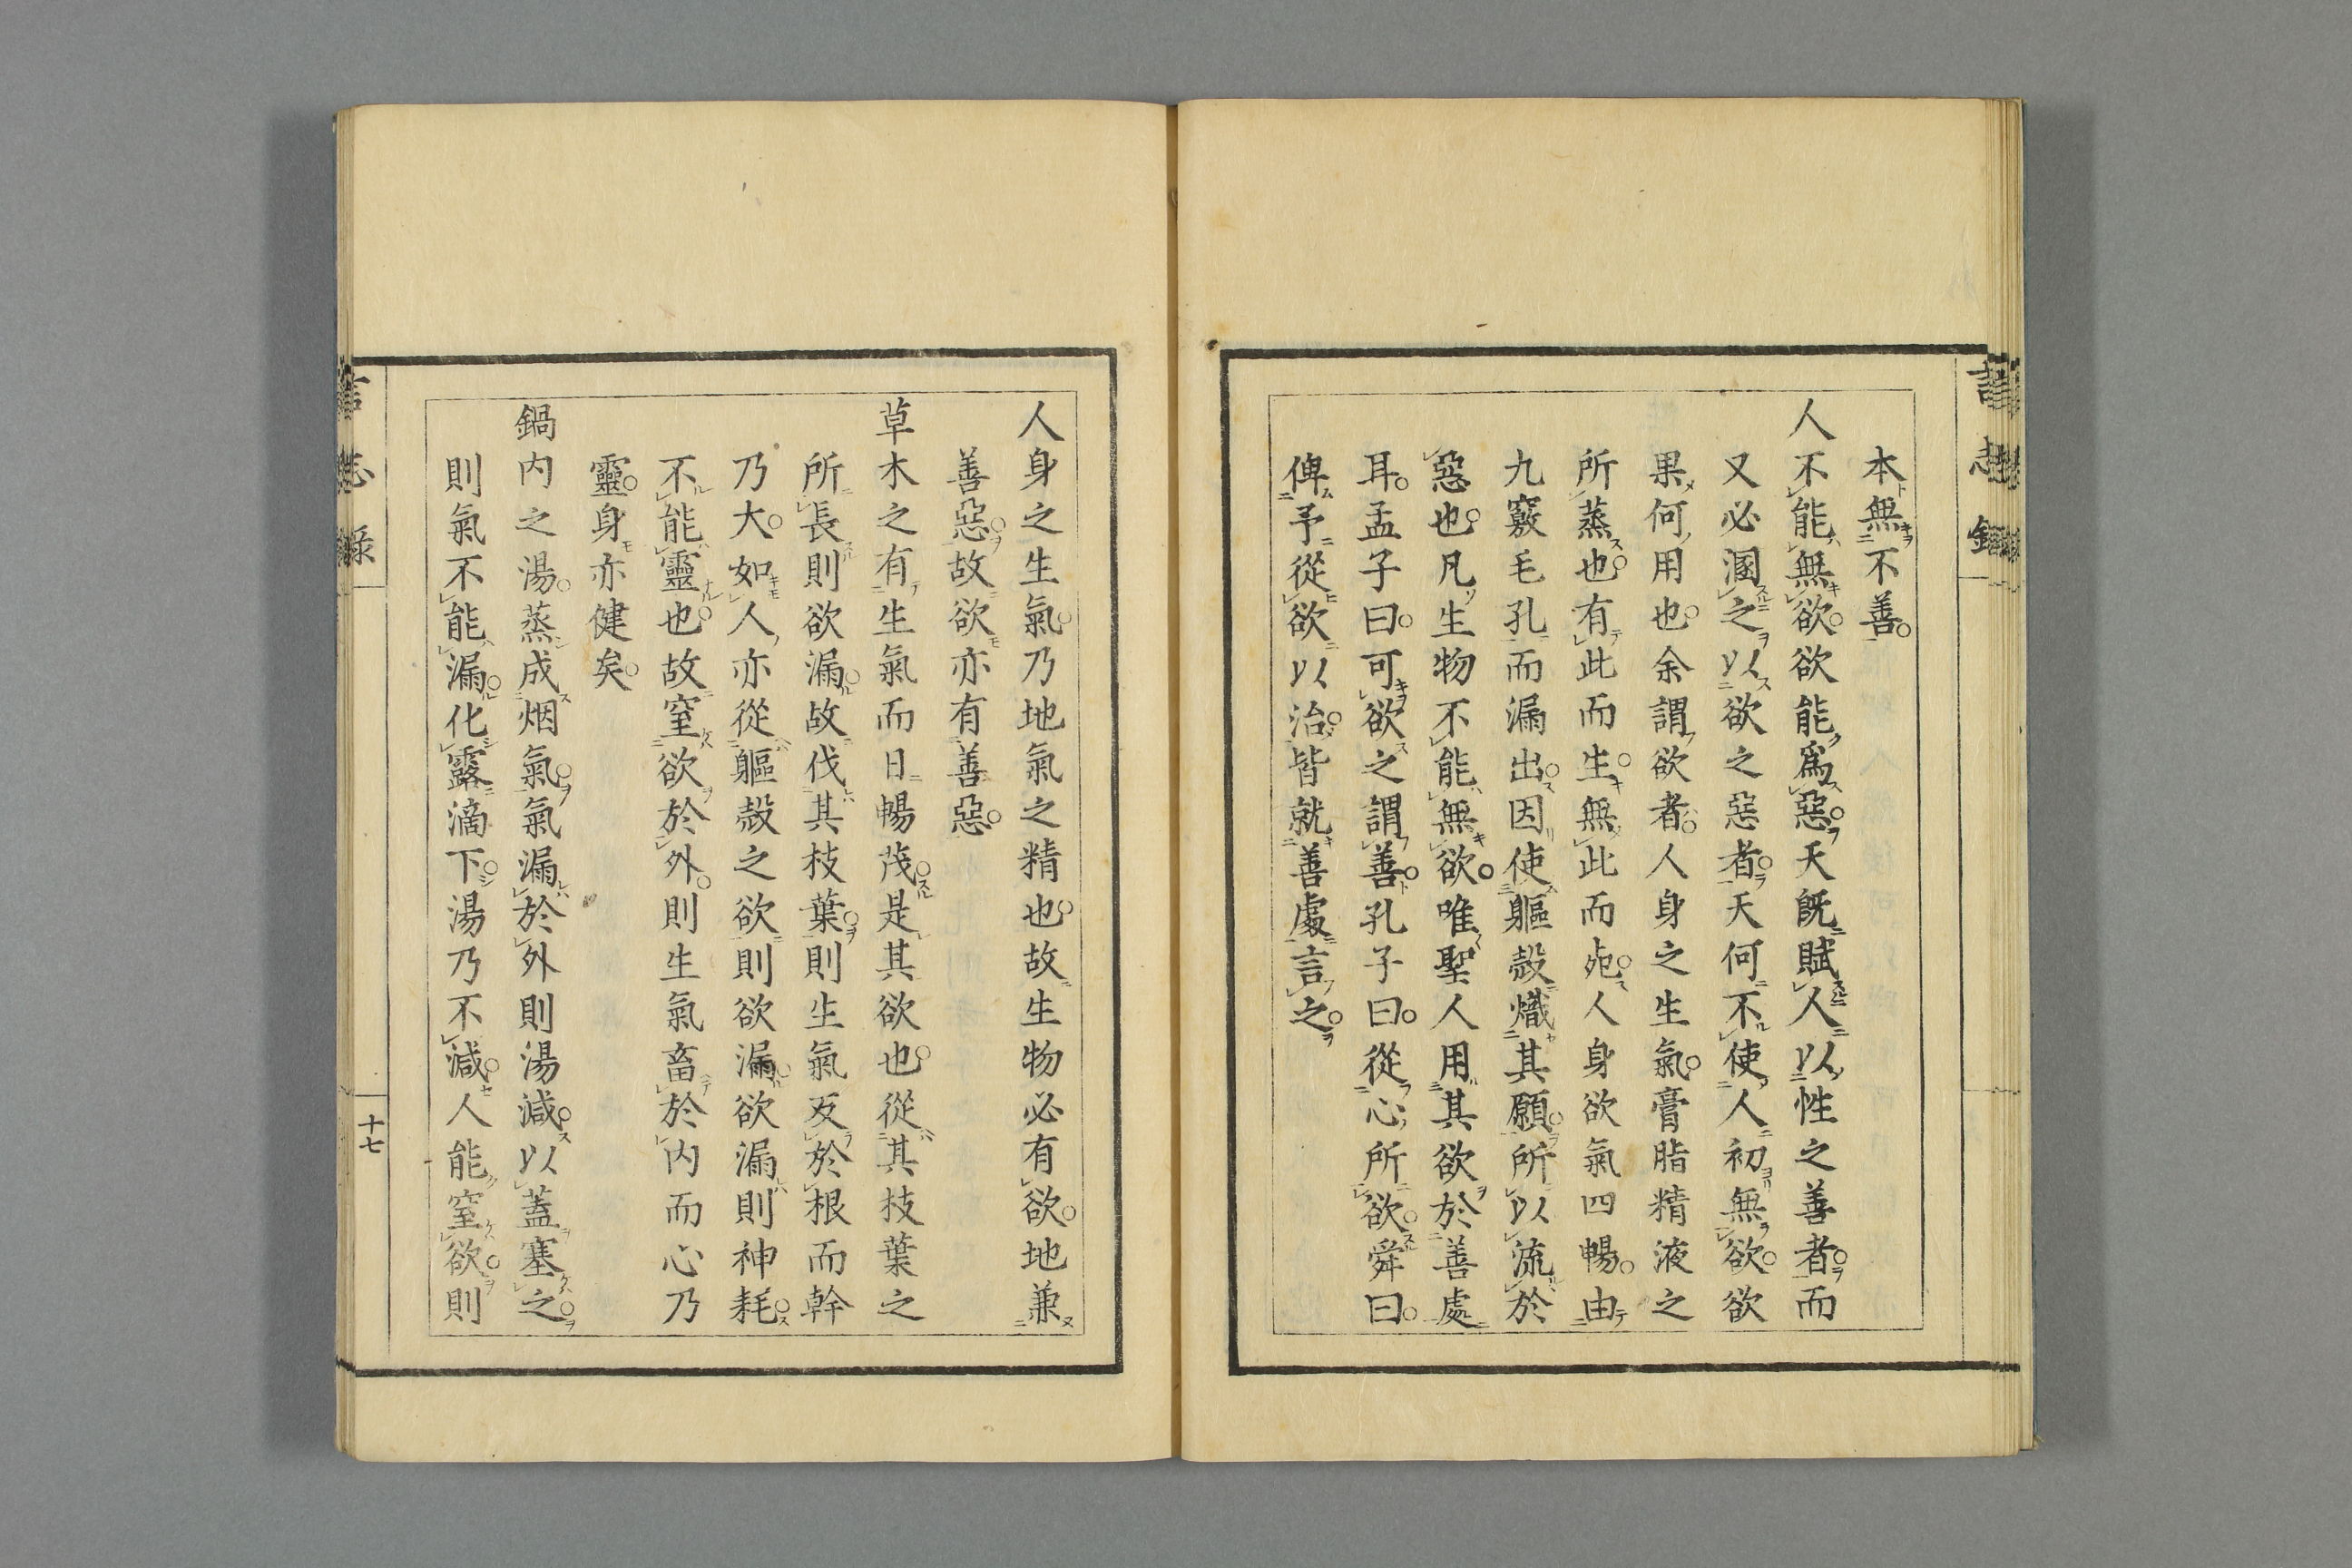 言志錄
本無不善。
人不能無欲。欲能爲惡。天既賦人以性之善者。而
又必溷之以欲之惡者。天何不使人初無欲。欲
果何用也。余謂欲者。人身之生氣。膏脂精液之
所蒸也。有此而生。無此而死。人身欲氣四暢。由
九竅毛孔而漏出。因使軀殼熾其願。所以流於
惡也。凡生物不能無欲。唯聖人用其欲於善處
耳。孟子曰。可欲之謂善。孔子曰。從心所欲。舜曰。
俾予從欲以治。皆就善處言之。
人身之生氣。乃地氣之精也。故生物必有欲。地兼
善惡。故欲亦有善惡。
草木之有生氣而日暢茂。是其欲也。從其枝葉之
所長則欲漏。故伐其枝葉。則生氣反於根而幹
乃大。如人亦從軀殼之欲則欲漏。欲漏則神耗。
不能靈也。故窒欲於外。則生氣畜於内而心乃
靈。身亦健矣。
鍋内之湯。蒸成烟氣。氣漏於外則湯減。以蓋塞之。
則氣不能漏。化露滴下。湯乃不減。人能窒欲。則
言志錄
十七